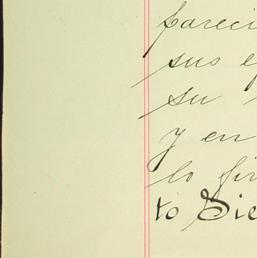 pareci
sus e
su
y en
lo fir
to Sie